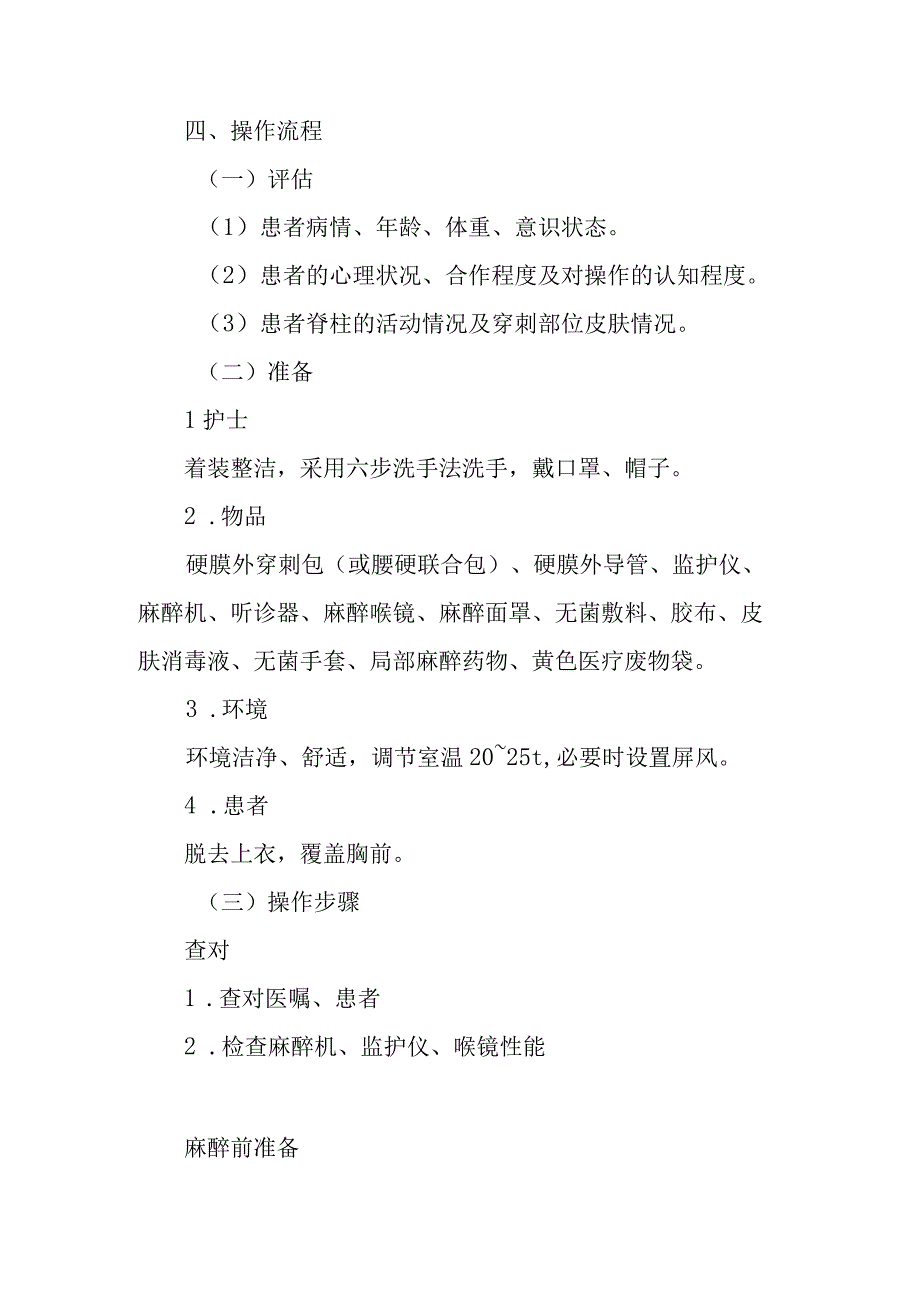 四、操作流程
（一）评估
（1）患者病情、年龄、体重、意识状态。
（2）患者的心理状况、合作程度及对操作的认知程度。
（3）患者脊柱的活动情况及穿刺部位皮肤情况。
（二）准备
1 护士
着装整洁，采用六步洗手法洗手，戴口罩、帽子。
2 .物品
硬膜外穿刺包（或腰硬联合包）、硬膜外导管、监护仪、
麻醉机、听诊器、麻醉喉镜、麻醉面罩、无菌敷料、胶布、皮
肤消毒液、无菌手套、局部麻醉药物、黄色医疗废物袋。
3 .环境
环境洁净、舒适，调节室温 20~25t,必要时设置屏风。
4 .患者
脱去上衣，覆盖胸前。
（三）操作步骤
查对
1 .查对医嘱、患者
2 .检查麻醉机、监护仪、喉镜性能
麻醉前准备